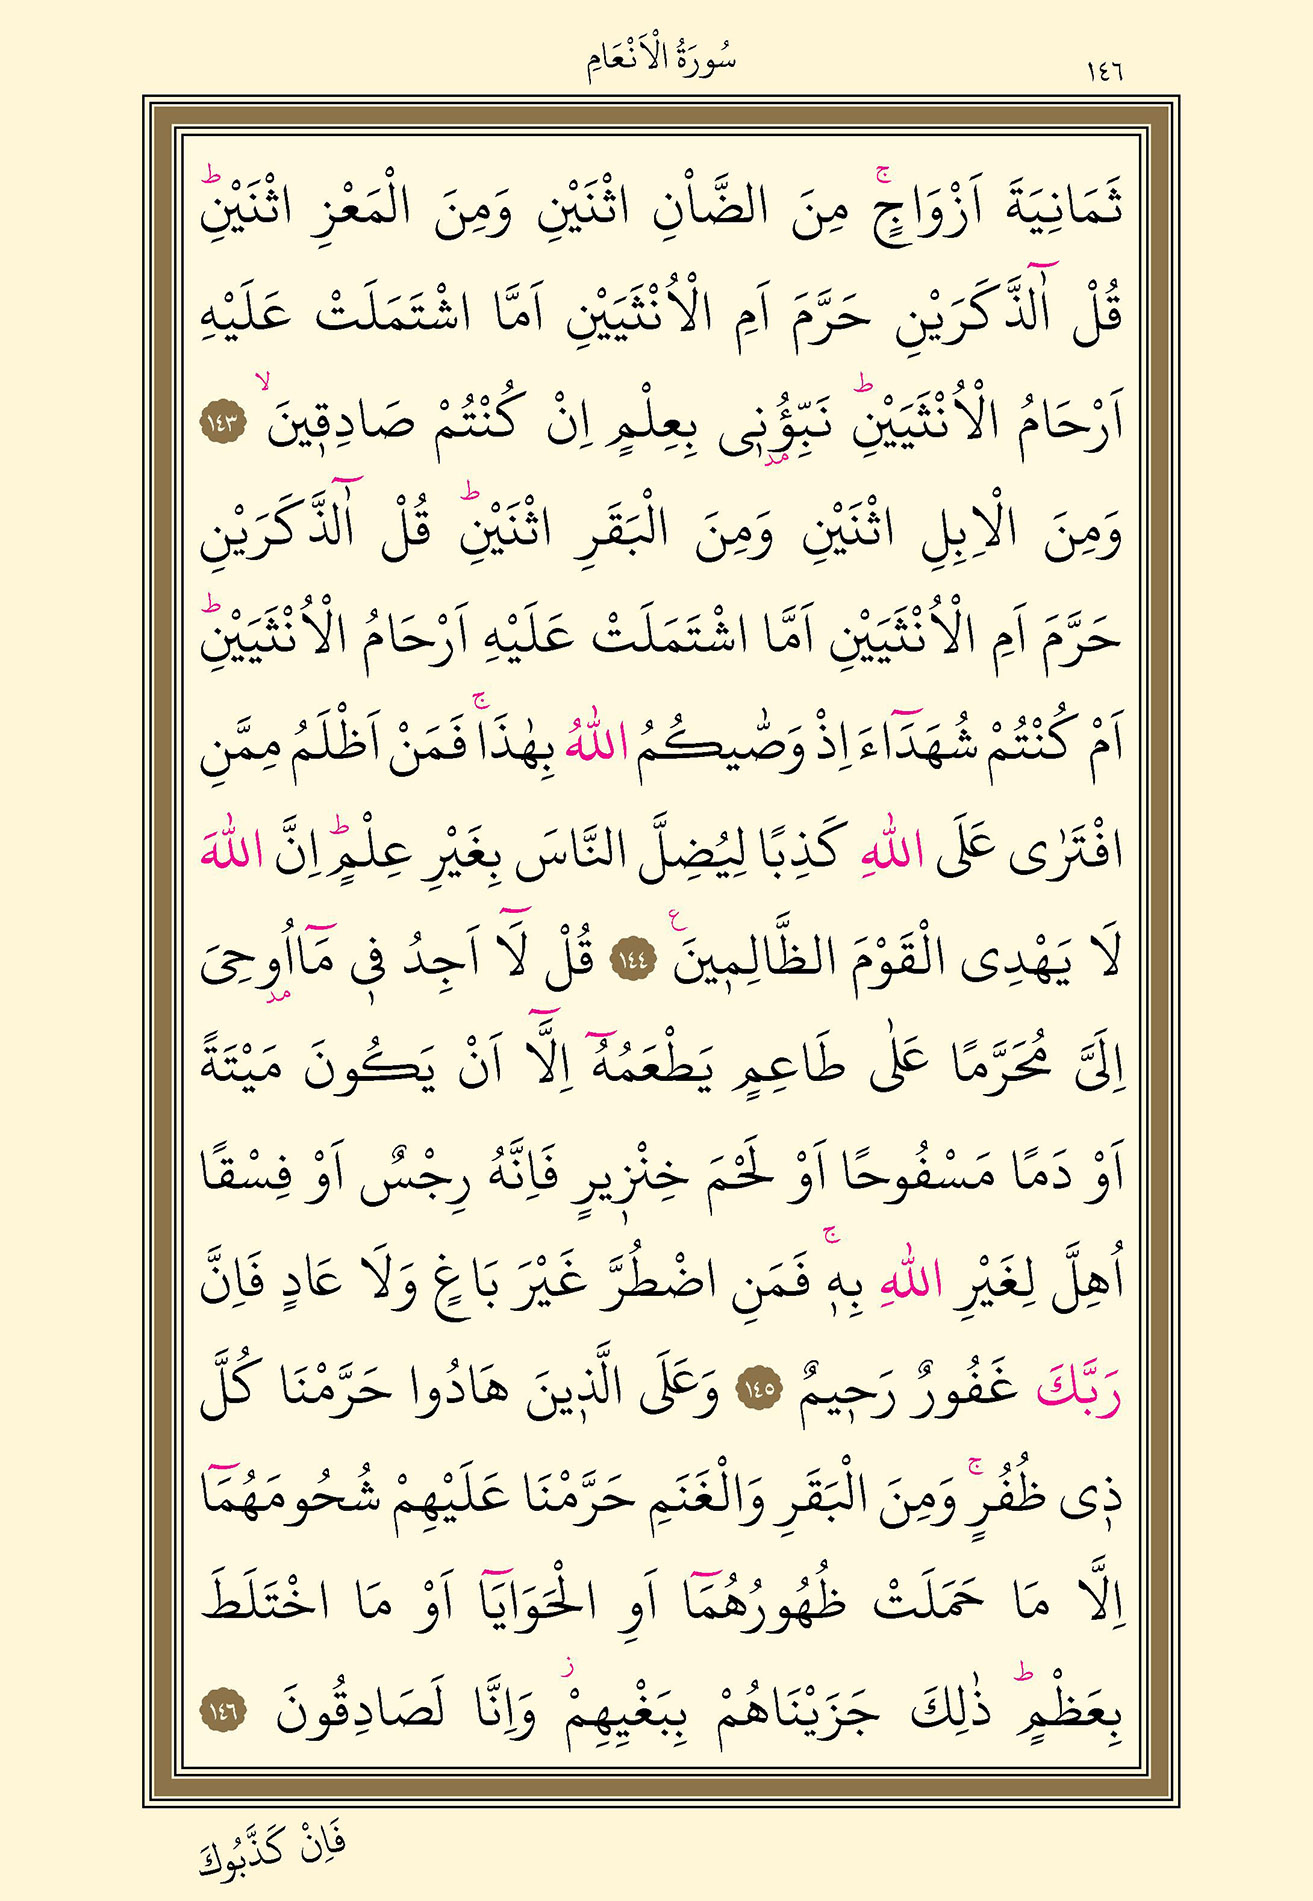 ١٤٦
سُورَةُ الْاَنْعَامِ
ثَمَانِيَةَ اَزْوَاجٍۚ مِنَ الضَّاْنِ اثْنَيْنِ وَمِنَ الْمَعْزِ اثْنَيْنِۜ
قُلْ آٰلذَّكَرَيْنِ حَرَّمَ اَمِ الْاُنْثَيَيْنِ اَمَّا اشْتَمَلَتْ عَلَيْهِ
اَرْحَامُ الْاُنْثَيَيْنِۜ نَبِّؤُ۫ن۪ي بِعِلْمٍ اِنْ كُنْتُمْ صَادِق۪ينَۙ ﴿١٤٣﴾
وَمِنَ الْاِبِلِ اثْنَيْنِ وَمِنَ الْبَقَرِ اثْنَيْنِۜ قُلْ آٰلذَّكَرَيْنِ
حَرَّمَ اَمِ الْاُنْثَيَيْنِ اَمَّا اشْتَمَلَتْ عَلَيْهِ اَرْحَامُ الْاُنْثَيَيْنِۜ
اَمْ كُنْتُمْ شُهَدَٓاءَ اِذْ وَصّٰيكُمُ اللّٰهُ بِهٰذَاۚ فَمَنْ اَظْلَمُ مِمَّنِ
افْتَرٰى عَلَى اللّٰهِ كَذِبًا لِيُضِلَّ النَّاسَ بِغَيْرِ عِلْمٍۜ اِنَّ اللّٰهَ
لَا يَهْدِي الْقَوْمَ الظَّالِم۪ينَ۟ ﴿١٤٤﴾ قُلْ لَٓا اَجِدُ ف۪ي مَٓا اُو۫حِيَ
اِلَيَّ مُحَرَّمًا عَلٰى طَاعِمٍ يَطْعَمُهُٓ اِلَّٓا اَنْ يَكُونَ مَيْتَةً
اَوْ دَمًا مَسْفُوحًا اَوْ لَحْمَ خِنْز۪يرٍ فَاِنَّهُ رِجْسٌ اَوْ فِسْقًا
اُهِلَّ لِغَيْرِ اللّٰهِ بِه۪ۚ فَمَنِ اضْطُرَّ غَيْرَ بَاغٍ وَلَا عَادٍ فَاِنَّ
رَبَّكَ غَفُورٌ رَح۪يمٌ ﴿١٤٥﴾ وَعَلَى الَّذ۪ينَ هَادُوا حَرَّمْنَا كُلَّ
ذ۪ي ظُفُرٍۚ وَمِنَ الْبَقَرِ وَالْغَنَمِ حَرَّمْنَا عَلَيْهِمْ شُحُومَهُمَٓا
اِلَّا مَا حَمَلَتْ ظُهُورُهُمَٓا اَوِ الْحَوَايَٓا اَوْ مَا اخْتَلَطَ
بِعَظْمٍۜ ذٰلِكَ جَزَيْنَاهُمْ بِبَغْيِهِمْۘ وَاِنَّا لَصَادِقُونَ ﴿١٤٦﴾
فَاِنْ كَذَّبُوكَ